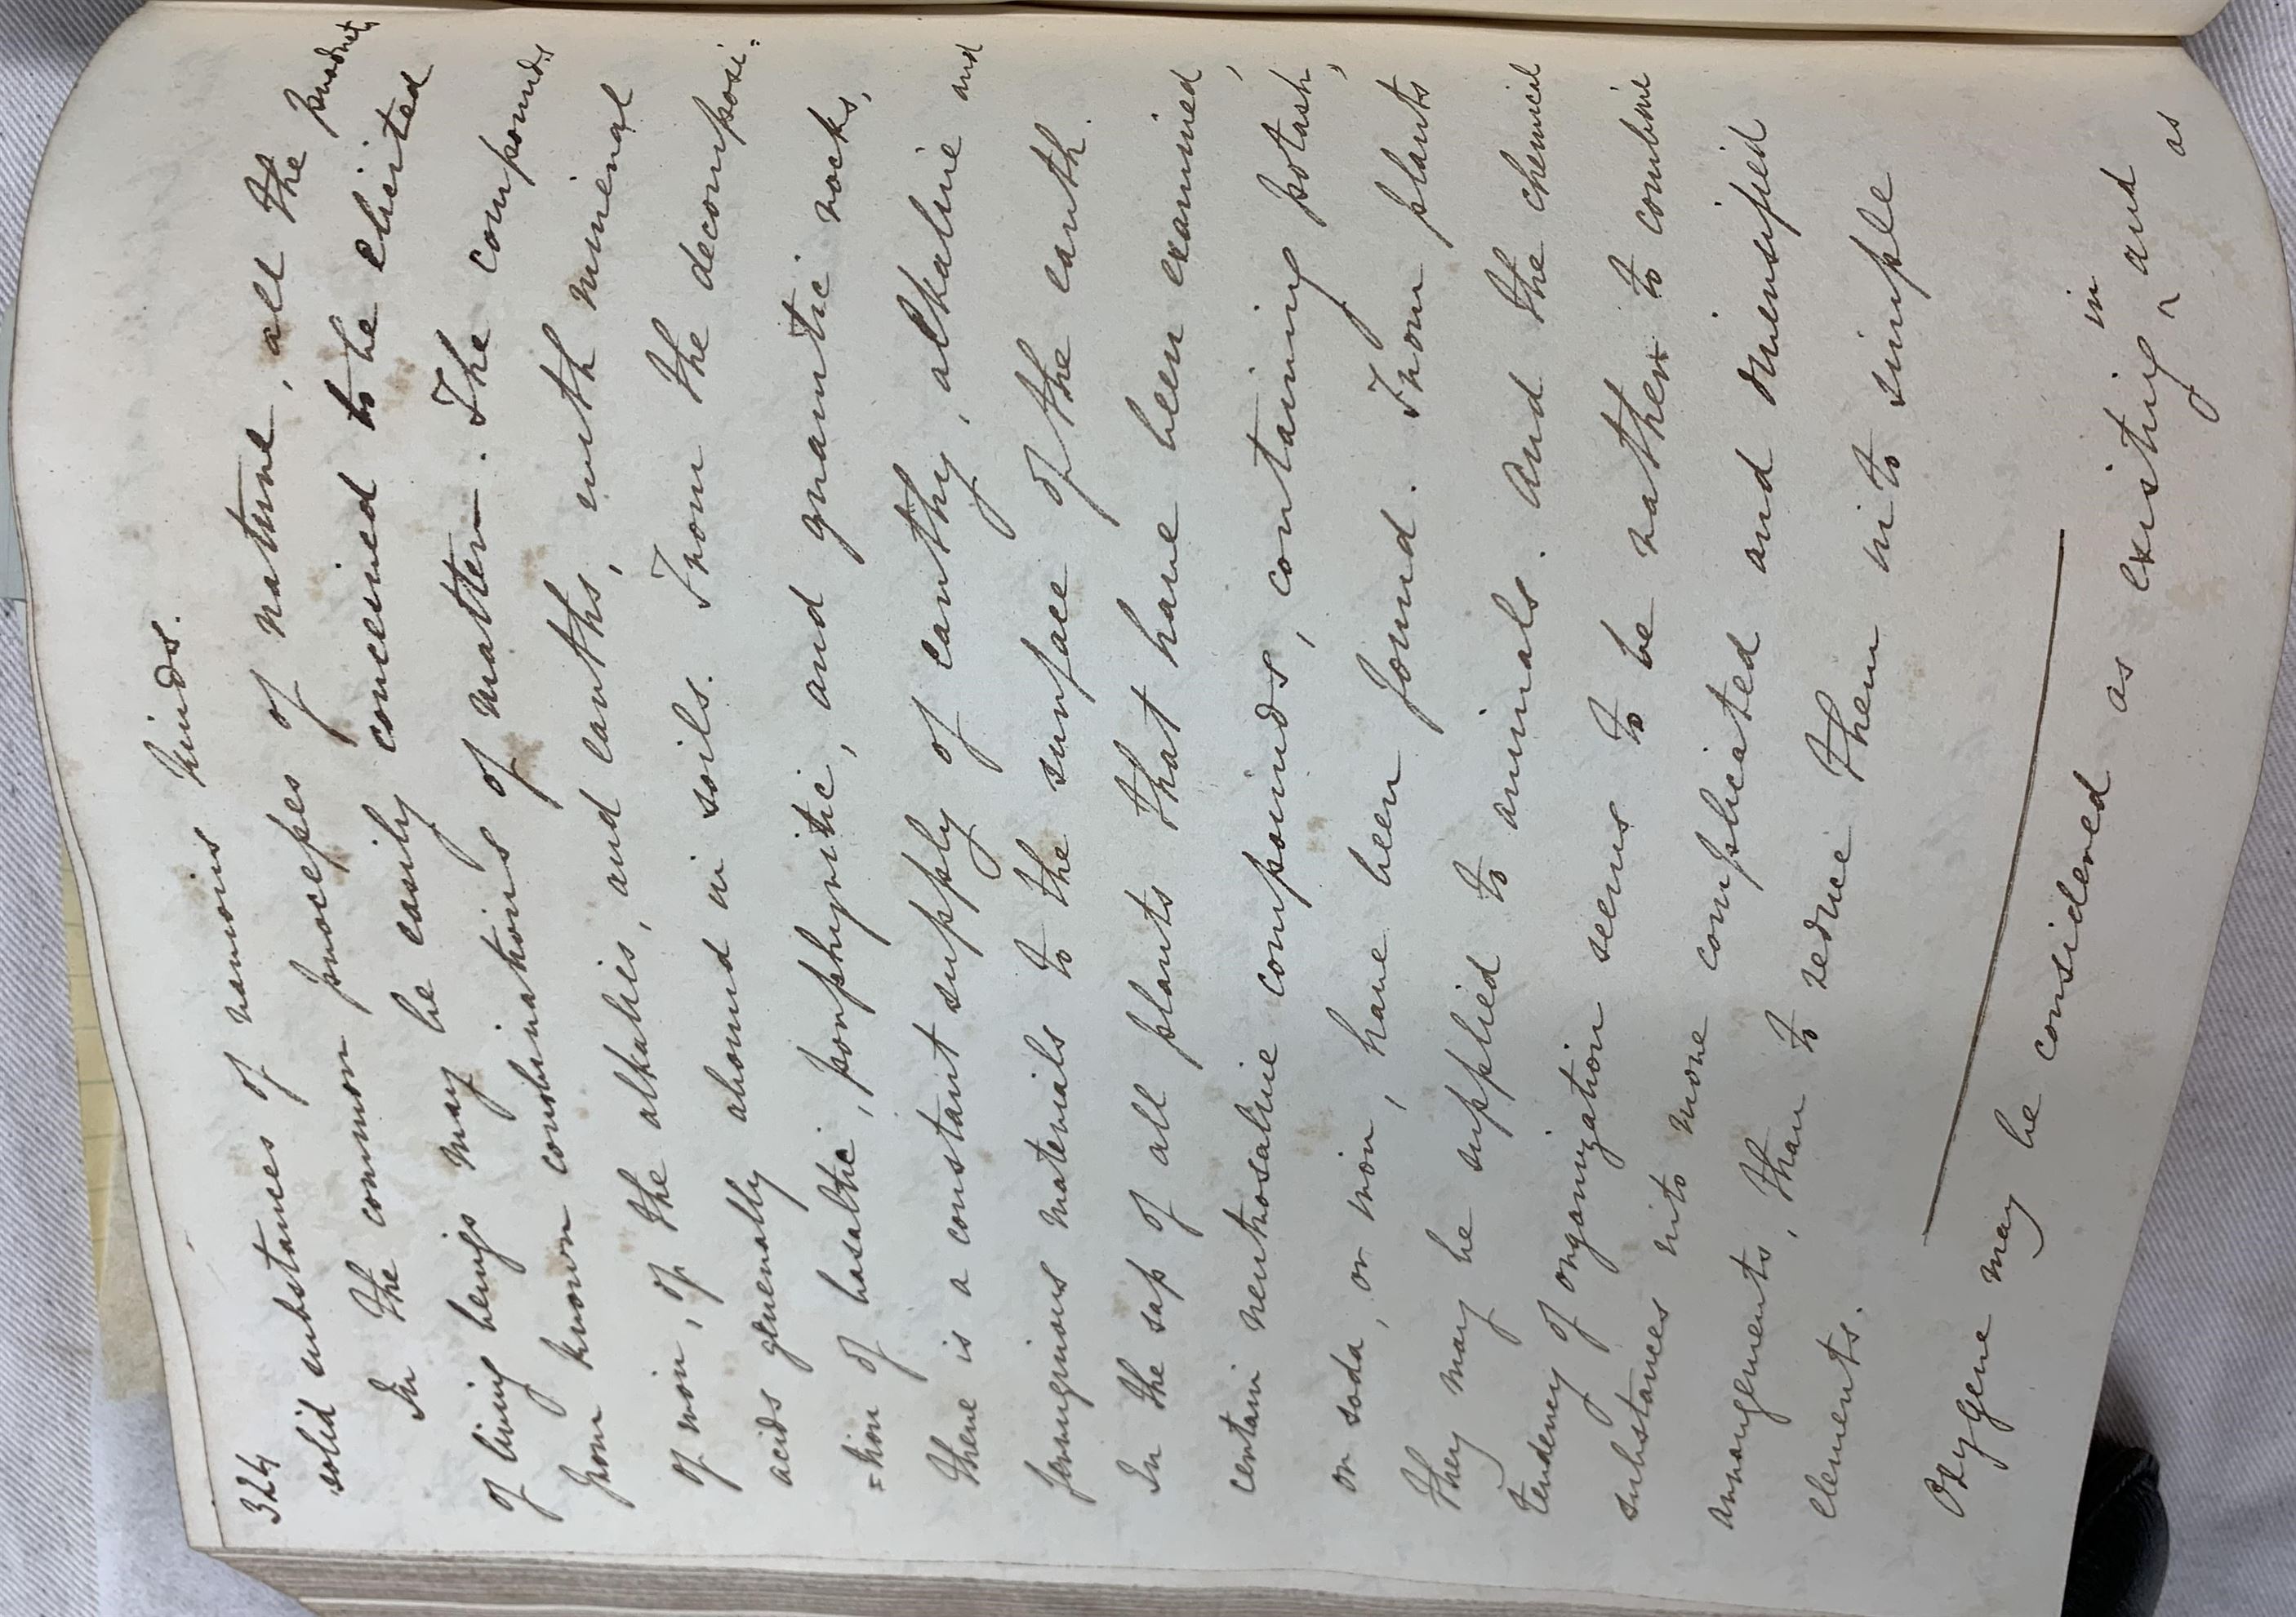 324
solid substances of various kinds.
In the common processes of nature, all the products
of living beings may be easily conceived to be elicited
from known combinations of matter. The compounds
of iron, of the alkalies, and earths, with mineral
acids generally abound in soils. From the decomposi=
=tion of basaltic, porphyritic, and granitic rocks,
there is a constant supply of earthy, alkaline and
ferruginous materials to the surface of the earth.
In the sap of all plants that have been examined,
certain neutrosaline compounds, containing potash,
or soda, or iron, have been found. From plants
they may be supplied to animals. And the chemical
tendency of organization seems to be rather to combine
substances into more complicated and diversified
arrangements, than to reduce them into simple
elements.
Oxygene may be considered as existing in and
as